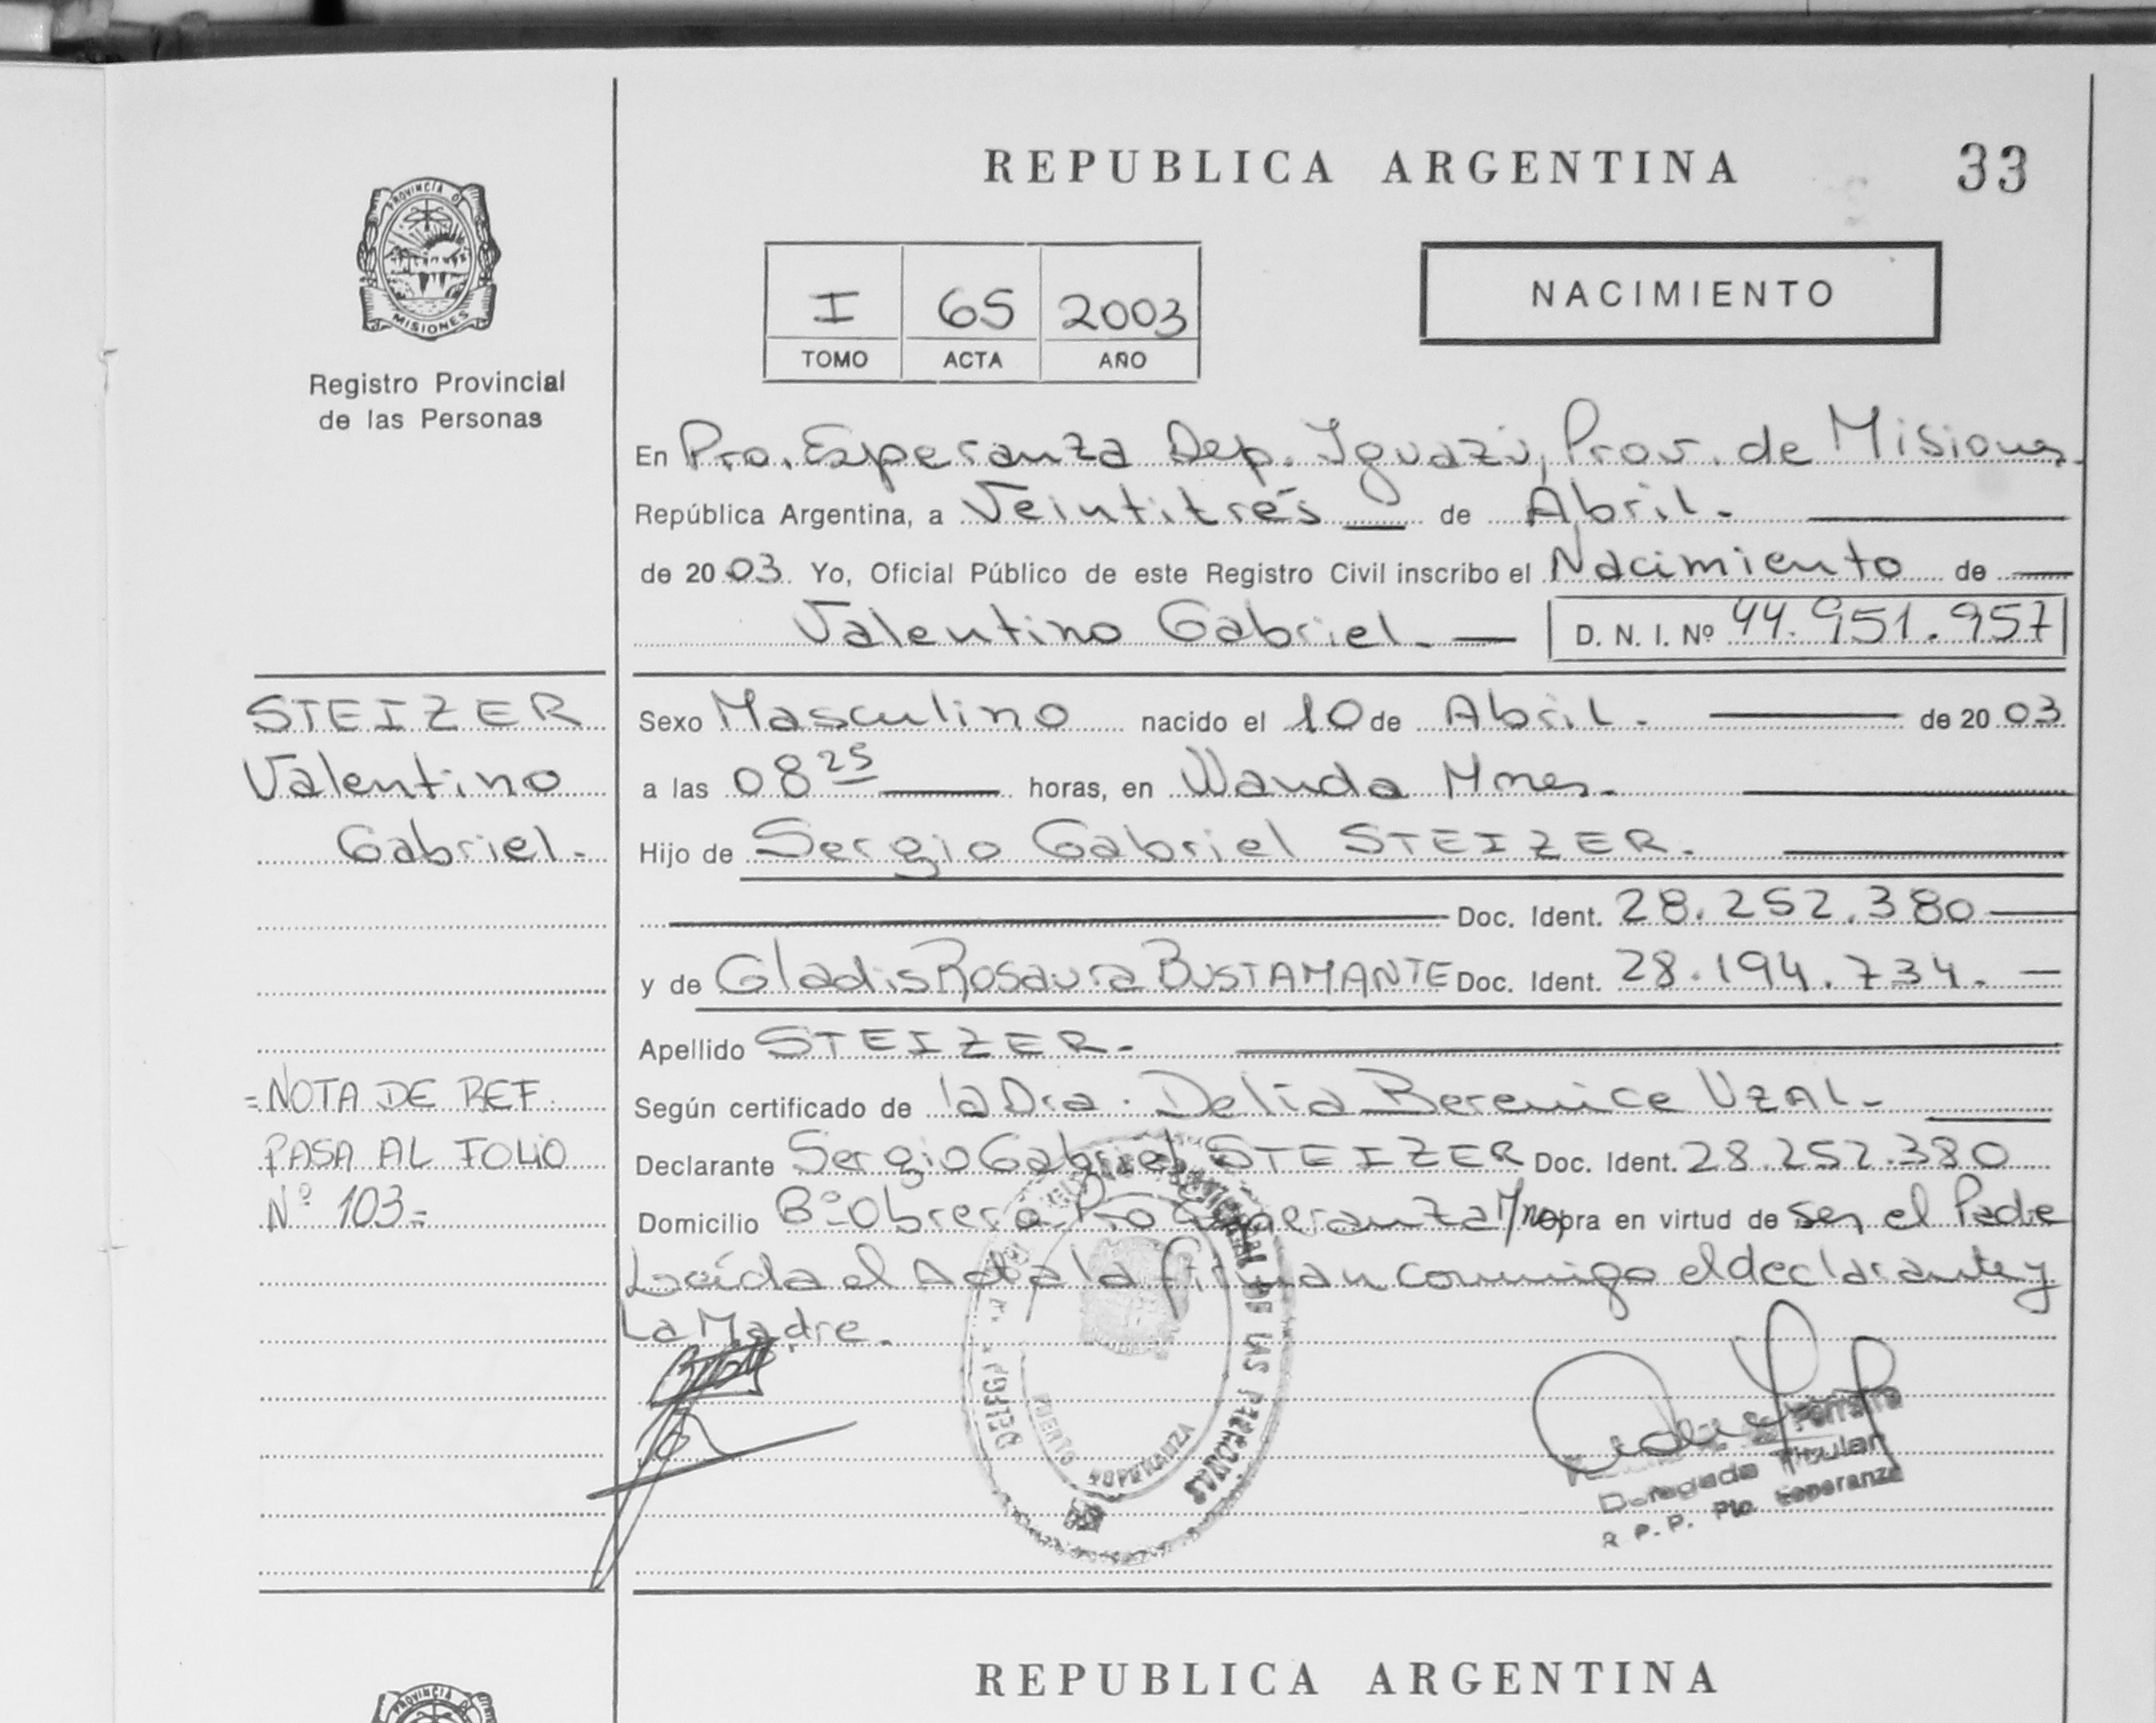 REPUBLICA ARGENTINA
33
PROVINCIA DE
MISIONES
Registro Provincial
de las Personas
I 65 2003
TOMO ACTA AÑO
NACIMIENTO
En Pto. Esperanza Dep. Iguazú, Prov. de Misiones
República Argentina, a Veintitrés de Abril.
de 2003. Yo, Oficial Público de este Registro Civil inscribo el Nacimiento de
Valentino Gabriel. D. N. I. Nº 44.951.957
STEIZER
Valentino
Gabriel.
Sexo Masculino nacido el 10 de Abril. de 2003
a las 08 25 horas, en Wanda Mnes.
Hijo de Sergio Gabriel STEIZER.
Doc. Ident. 28.252.380
y de Gladis Rosaura BUSTAMANTE Doc. Ident. 28.194.734.
Apellido STEIZER.
=NOTA DE REF.
PASA AL FOLIO
Nº 103=
Según certificado de la Dra. Delia Berenice UZAL.
Declarante Sergio Gabriel STEIZER Doc. Ident. 28.252.380
Domicilio Bº Obrero Pto Esperanza M/nes opra en virtud de ser el Padre
Leída el Acta la firman conmigo el declarante y
La Madre.
DE LAS PERSONAS
PUERTO ESPERANZA
Ferreira
Delegada Titular
R. P. P. Pto. Esperanza
REPUBLICA ARGENTINA
PROVINCIA DE